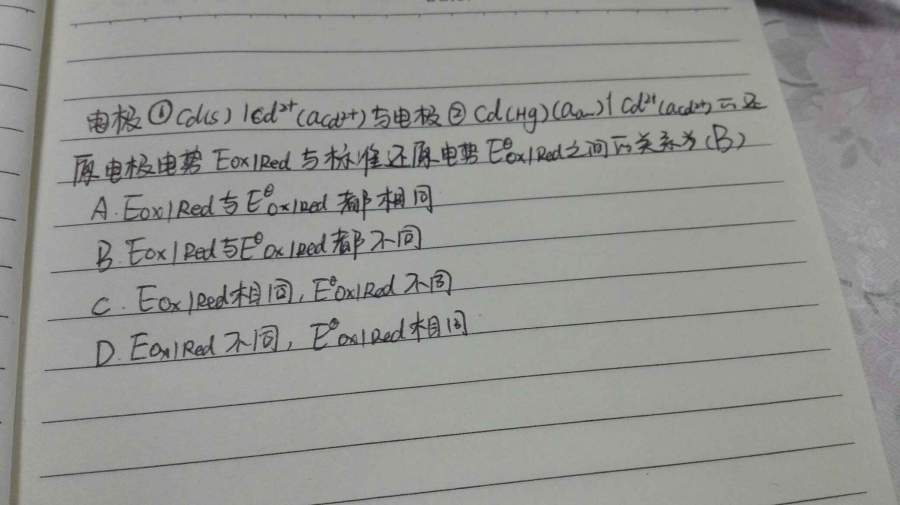 电极①Cd(s)|Cd²⁺(aCd²⁺)与电极②Cd(Hg)(aₐₘ)|Cd²⁺(aCd²⁺)的还
原电极电势 Eox|Red 与标准还原电势 E^θox|Red之间的关系为(B)
A. Eox|Red与E^θox|Red 都相同
B. Eox|Red与E^θox|Red都不同
C. Eox|Red相同, E^θox|Red 不同
D. Eox|Red 不同, E^θox|Red相同